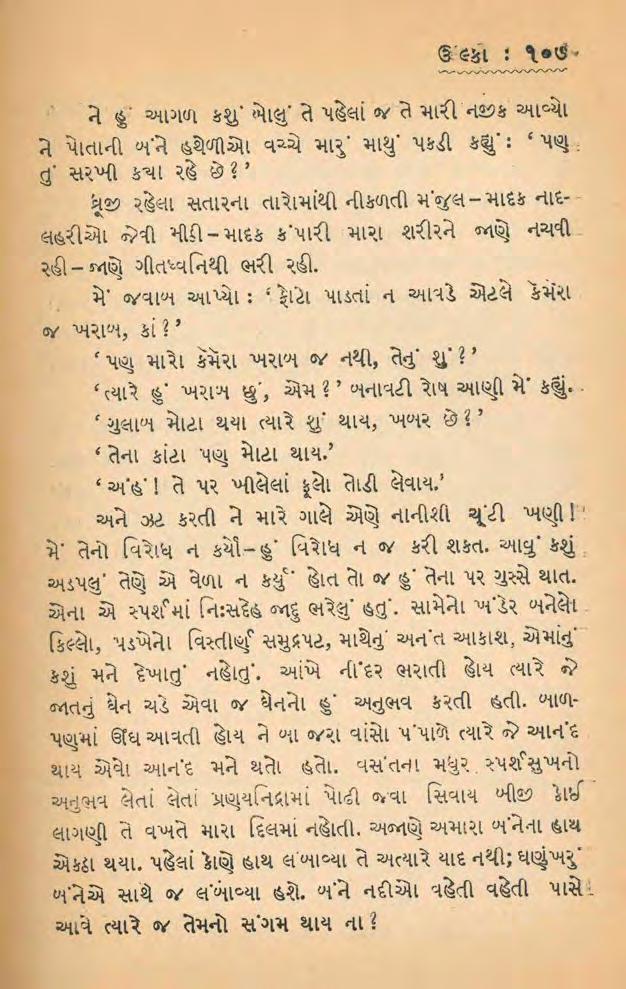 ઉલ્કા : ૧૦૭
ને હું આગળ કશું બોલું તે પહેલાં જ તે મારી નજીક આવ્યો
ને પોતાની બંને હથેળીઓ વચ્ચે મારું માથું પકડી કહ્યું : ‘ પણ
તું સરખી કયા રહે છે ? ’
ધ્રૂજી રહેલા સતારના તારોમાંથી નીકળતી મંજુલ – માદક નાદ-
લહરીઓ જેવી મીઠી – માદક કંપારી મારા શરીરને જાણે નચવી
રહી – જાણે ગીતધ્વનિથી ભરી રહી.
મેં જવાબ આપ્યો : ‘ ફોટો પાડતાં ન આવડે એટલે કૅમૅરા
જ ખરાબ, કાં ? ’
‘ પણ મારો કૅમૅરા ખરાબ જ નથી, તેનું શું ? ’
‘ ત્યારે હું ખરાબ છું, એમ ? ’ બનાવટી રોષ આણી મેં કહ્યું.
‘ ગુલાબ મોટા થયા ત્યારે શું થાય, ખબર છે ? ’
‘ તેના કાંટા પણ મોટા થાય.’
‘ અંહં ! તે પર ખીલેલાં ફૂલો તોડી લેવાય.’
અને ઝટ કરતી ને મારે ગાલે એણે નાનીશી ચૂંટી ખણી !
મેં તેનો વિરોધ ન કર્યો – હું વિરોધ ન જ કરી શકત. આવું કશું
અડપલું તેણે એ વેળા ન કર્યું હોત તો જ હું તેના પર ગુસ્સે થાત.
એના એ સ્પર્શમાં નિઃસદેહ જાદુ ભરેલું હતું. સામેનો ખંડેર બનેલો
કિલ્લો, પડખેનો વિસ્તીર્ણ સમુદ્રપટ, માથેનું અનંત આકાશ, એમાંનું
કશું મને દેખાતું નહોતું. આંખે નીંદર ભરાતી હોય ત્યારે જે
જાતનું ઘેન ચડે એવા જ ઘેનનો હું અનુભવ કરતી હતી. બાળ-
પણમાં ઊંઘ આવતી હોય ને બા જરા વાંસો પંપાળે ત્યારે જે આનંદ
થાય એવો આનંદ મને થતો હતો. વસંતના મધુર સ્પર્શસુખનો
અનુભવ લેતાં લેતાં પ્રણયનિદ્રામાં પોઢી જવા સિવાય બીજી કોઈ
લાગણી તે વખતે મારા દિલમાં નહોતી. અજાણે અમારા બંનેના હાથ
એકઠા થયા. પહેલાં કોણે હાથ લંબાવ્યા તે અત્યારે યાદ નથી; ઘણુંખરું
બંનેએ સાથે જ લંબાવ્યા હશે. બંને નદીઓ વહેતી વહેતી પાસે
આવે ત્યારે જ તેમનો સંગમ થાય ના ?